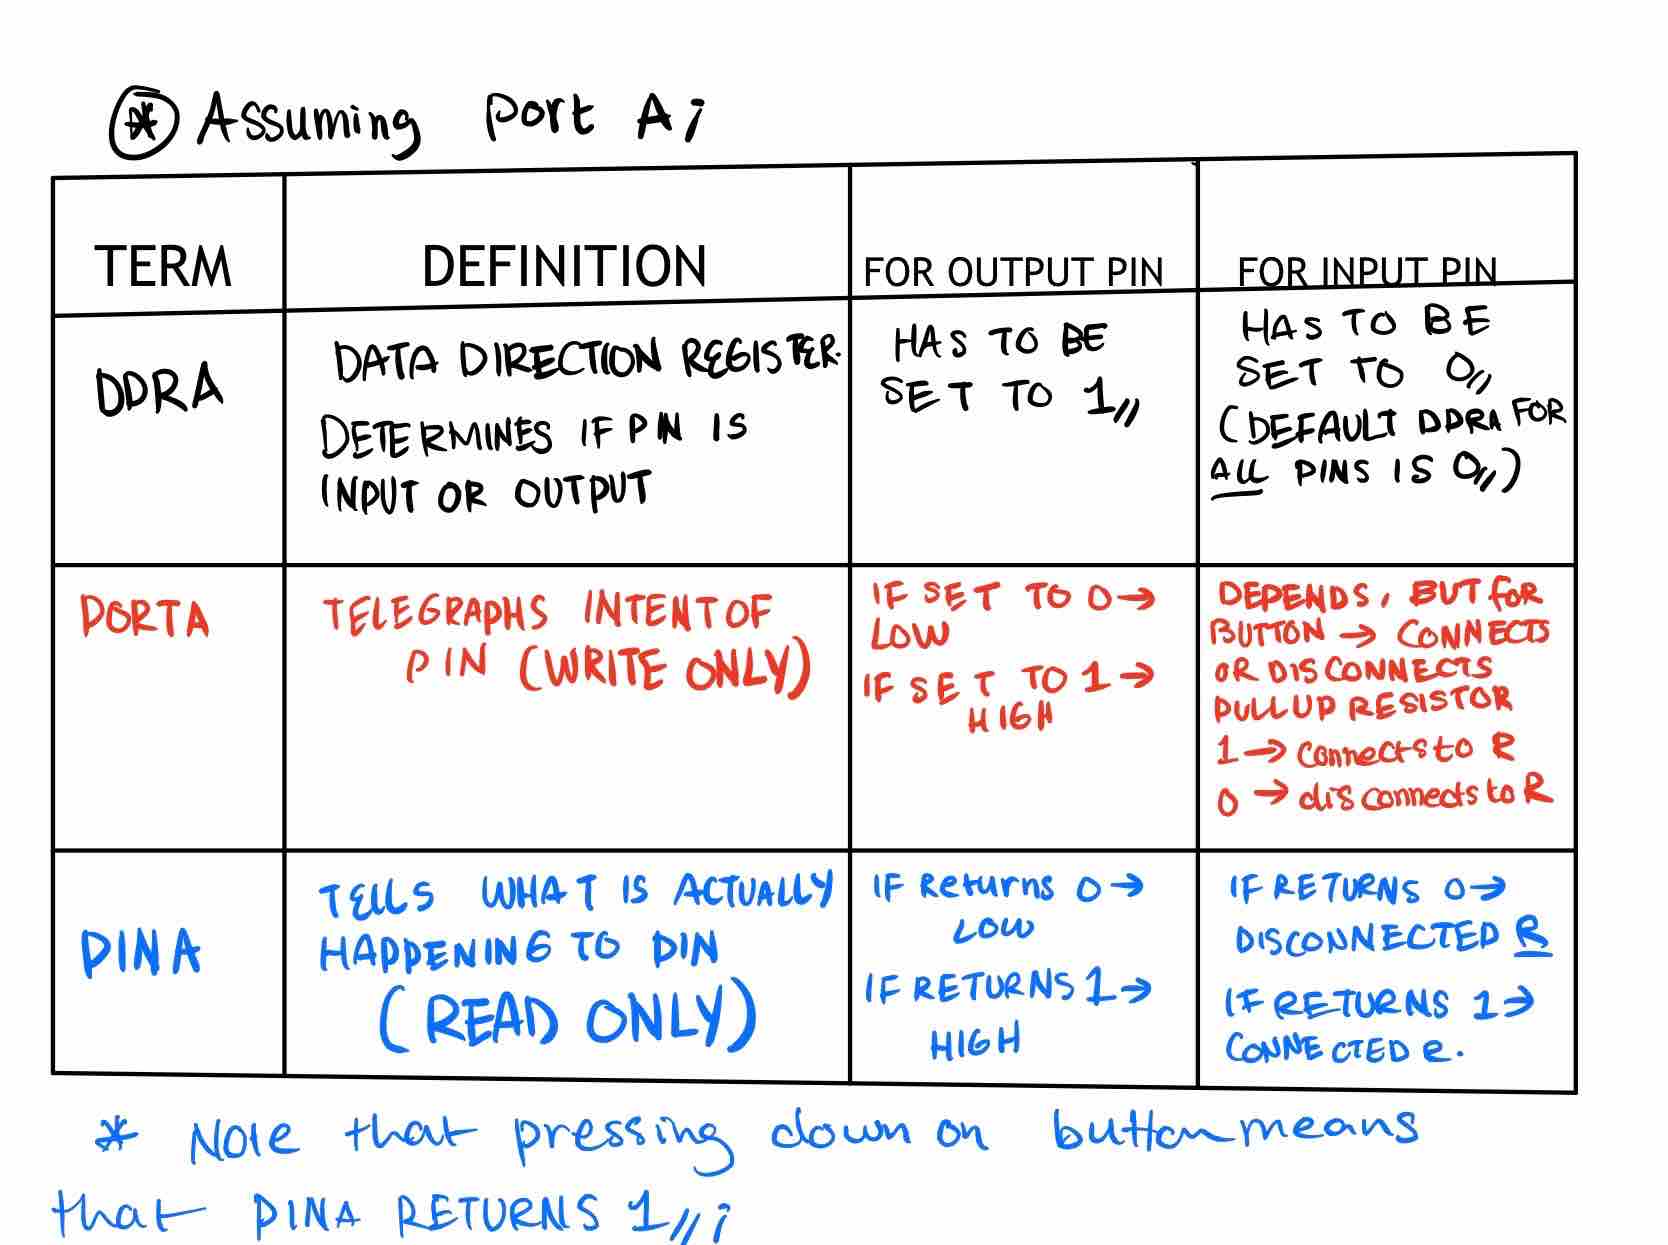 * Assuming Port A;
TERM
DEFINITION
FOR OUTPUT PIN
FOR INPUT PIN
DDRA
DATA DIRECTION REGISTER.
DETERMINES IF PIN IS
INPUT OR OUTPUT
HAS TO BE
SET TO 1,,
HAS TO BE
SET TO 0,,
(DEFAULT DDRA FOR
ALL PINS IS 0,,)
PORTA
TELEGRAPHS INTENT OF
PIN (WRITE ONLY)
IF SET TO 0→
LOW
IF SET TO 1→
HIGH
DEPENDS, BUT for
BUTTON → CONNECTS
OR DISCONNECTS
PULLUP RESISTOR
1→ connects to R
0 → disconnects to R
PINA
TELLS WHAT IS ACTUALLY
HAPPENING TO PIN
(READ ONLY)
IF Returns 0→
LOW
IF RETURNS 1→
HIGH
IF RETURNS 0→
DISCONNECTED R
IF RETURNS 1→
CONNECTED R.
* Note that pressing down on button means
that PINA RETURNS 1,,;